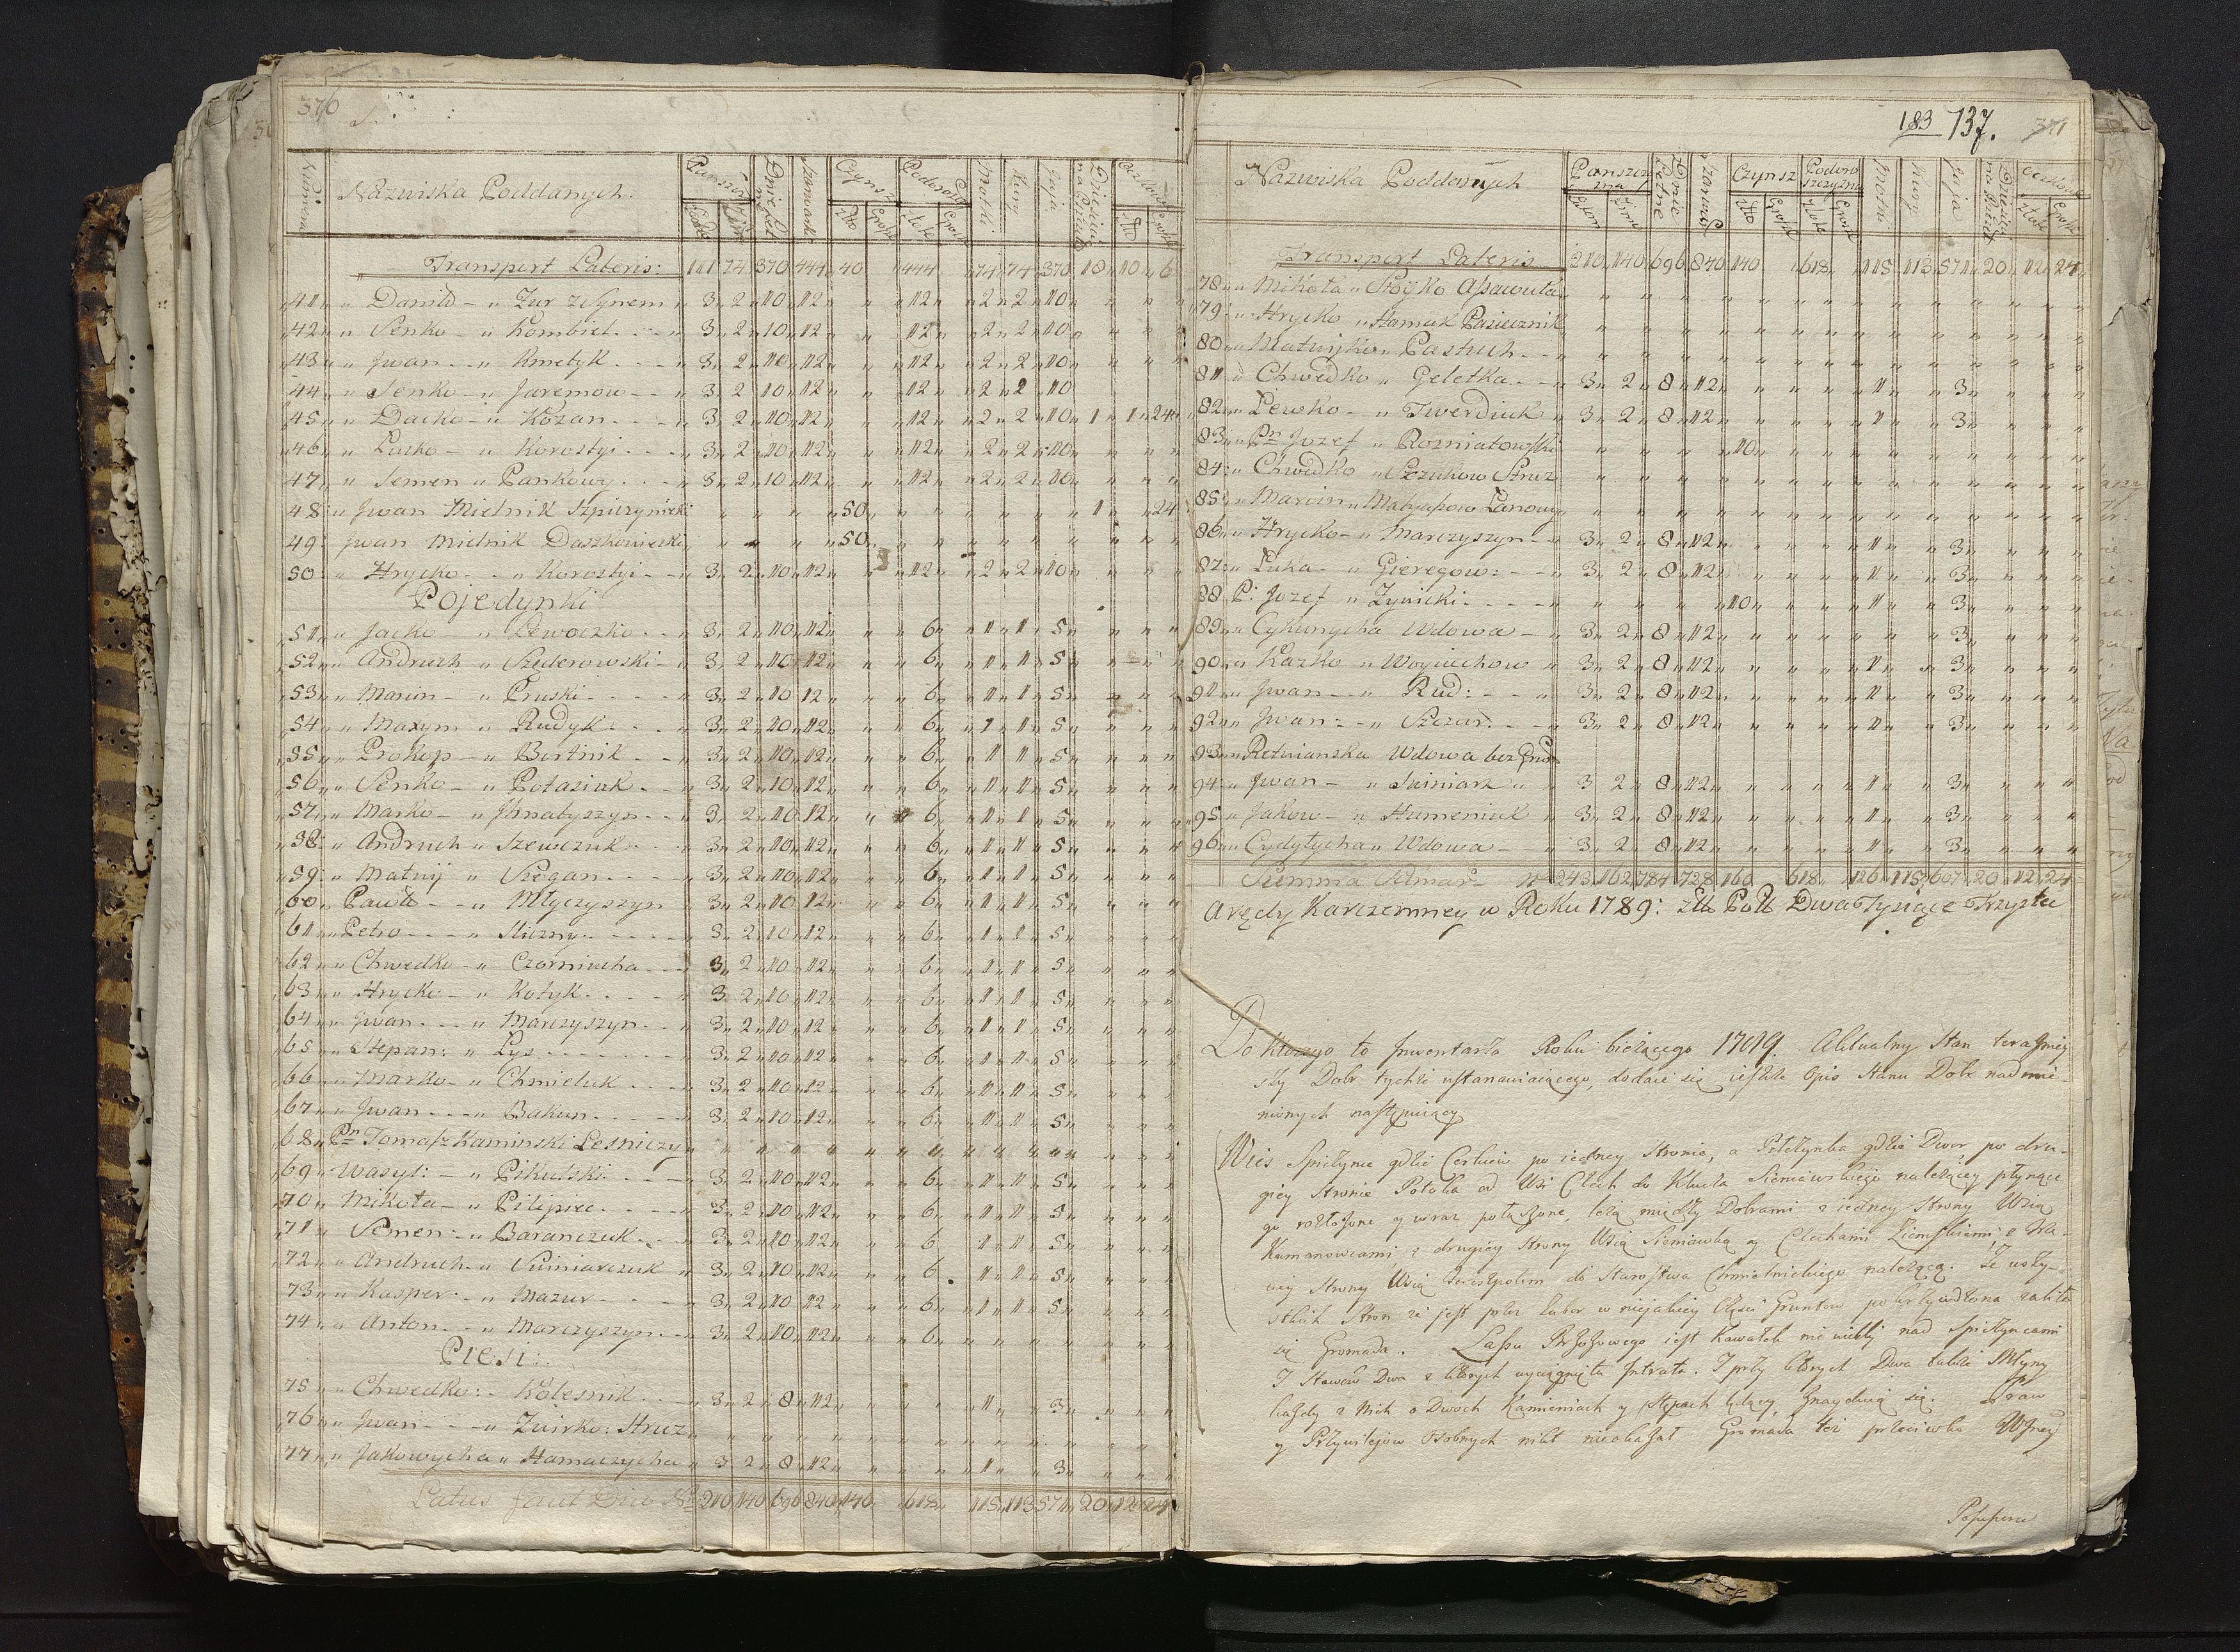 376
Numera Nazwiska Poddanych. Panszczy Dnie Let Szarwark Czynsz Podorosz Motki Kury Jaja Dziesięci na Grunt Oczkowe
złto Grosz złote Grosz złto Grosz
Transport Lateris: 101 74 370 444 40 444 74 74 370 18 10 6
41 Daniło Zur z Synem 3 2 10 12 12 2 2 10
42 Senko Kombiel 3 2 10 12 12 2 2 10
43 Jwan Kmetyk 3 2 10 12 12 2 2 10
44 Senko Jaremow 3 2 10 12 12 2 2 10
45 Dacko Kozan 3 2 10 12 12 2 2 10 1 1 24
46 Lucko Korostyi 3 2 10 12 12 2 2 10
47 Semen Pankowy 3 2 10 12 12 2 2 10
48 Jwan Mielnik Szpiczyniecki 50 1 24
49 Jwan Mielnik Daszkowiecki 50
50 Hrycko Korostyi 3 2 10 12 12 2 2 10
Pojedynki
51 Jacko Lewoczko 3 2 10 12 6 1 1 5
52 Andruch Szederowski 3 2 10 12 6 1 1 5
53 Marcin Pruski 3 2 10 12 6 1 1 5
54 Maxym Rudyk 3 2 10 12 6 1 1 5
55 Prokop Bortnik 3 2 10 12 6 1 1 5
56 Senko Potasiuk 3 2 10 12 6 1 1 5
57 Marko Hnatyszyn 3 2 10 12 6 1 1 5
58 Andruch Szewczuk 3 2 10 12 6 1 1 5
59 Matwij Cegan 3 2 10 12 6 1 1 5
60 Pawło Młyczyszyn 3 2 10 12 6 1 1 5
61 Petro Sliczny 3 2 10 12 6 1 1 5
62 Chwedko Czorniucha 3 2 10 12 6 1 1 5
63 Hrycko Kotyk 3 2 10 12 6 1 1 5
64 Jwan Marczyszyn 3 2 10 12 6 1 1 5
65 Stepan: Lys 3 2 10 12 6 1 1 5
66 Marko Chmieluk 3 2 10 12 6 1 1 5
67 Jwan Bakun 3 2 10 12 6 1 1 5
68 Pn Tomasz Kaminski Lesniczy
69 Wasyl: Pikulski 3 2 10 12 6 1 1 5
70 Mikoła Pilipiec 3 2 10 12 6 1 1 5
71 Semen: Baranczuk 3 2 10 12 6 1 1 5
72 Andruch Winiarczuk 3 2 10 12 6 1 1 5
73 Kasper Mazur 3 2 10 12 6 1 1 5
74 Anton Marczyszyn 3 2 10 12 6
Piesi:
75 Chwedko: Kolesnik 3 2 8 12 1 3
76 Jwan Zwirko: Struz
77 Jakowycha Hamaczycha 3 2 8 12 1 3
Latus facit Dico No 210 140 696 840 140 618 115 113 571 20 12 24
183 137. 371
Nazwiska Poddanych Panszczyzna Dnie Letne Szarwark Czynsz Podoroszczyzna Motki Kury Jaja Dziesięci na Grunt Oczkowe
Latem Zimą złto Grosz złote Grosz złote Grosz
Transport Lateris 210 140 696 840 140 618 115 113 571 20 12 24
78 Mikoła Stoyko Assawuła
79 Hrycko Hamak Pasiecznik
80 Matwijko Pastuch
81 Chwedko Geletka 3 2 8 12 1 3
82 Lewko Twerdiuk 3 2 8 12 1 3
83 Pn Jozef Rozniatowski 10
84 Chwedko Struz
85 Marcin Matyaszow Łanowy
86 Hrycko Marczyszyn 3 2 8 12 1 3
87 Luka Gieregow: 3 2 8 12 1 3
88 P: Jozef Zywicki 10 1 3
89 Cykunycha Wdowa 3 2 8 12 3
90 Kazko Woyciechow 3 2 8 12 1 3
91 Jwan Rud: 3 2 8 12 1 3
92 Jwan: Slezar: 3 2 8 12 1 3
93 Retwianska Wdowa bez Grun
94 Jwan Swiniark 3 2 8 12 1 3
95 Jakow Humeniuk 3 2 8 12 1 3
96 Cydytycha Wdowa 3 2 8 12 1 3
Summa Sumar No 243 162 784 728 160 618 126 115 607 20 12 24
Arędy Karczemney w Roku 1789: złł Poll Dwa Tysiące Trzysta
Do ktorego to Jnwentarza Roku bieżącego 1789. Aktualny Stan terazniey
szy Dobr tychże ustanawiaiącego, dodaie się ieszcze Opis Stanu Dobr nadmie-
nionych następuiący
Wies Spiczynce gdzie Cerkiew po iedney Stronie, a gdzie Dwor, po dru-
giey Stronie Potoka od Wsi Clech do Klucza Sieniawskiego należącey płynące
go rozłożone y wraz połączone, leżą między Dobrami z iedney Strony Wsią
Kumanowcami, z drugiey Strony Wsią Sieniawką y Clechami Ziemskiemi, z trze-
ciey Strony Wsią Tereszpolem do Starostwa Chmielnickiego należącą. Ze wszy-
stkich Stron że jest przez zabor w niejakiey części Gruntow pokrzywdzona żali
się Gromada. Lassu Brzozowego jest Kawałek nie wielki nad Spiczyncami
I Stawow Dwa z ktorych wyciągnięta Jntrata. I przy ktorych Dwa także Młyny
każdy z Nich o Dwoch Kamieniach y Stępach będący, znayduią się. Praw
y Przywilejow Osobnych nikt nieokazał Gromada też przeciwko Wżney